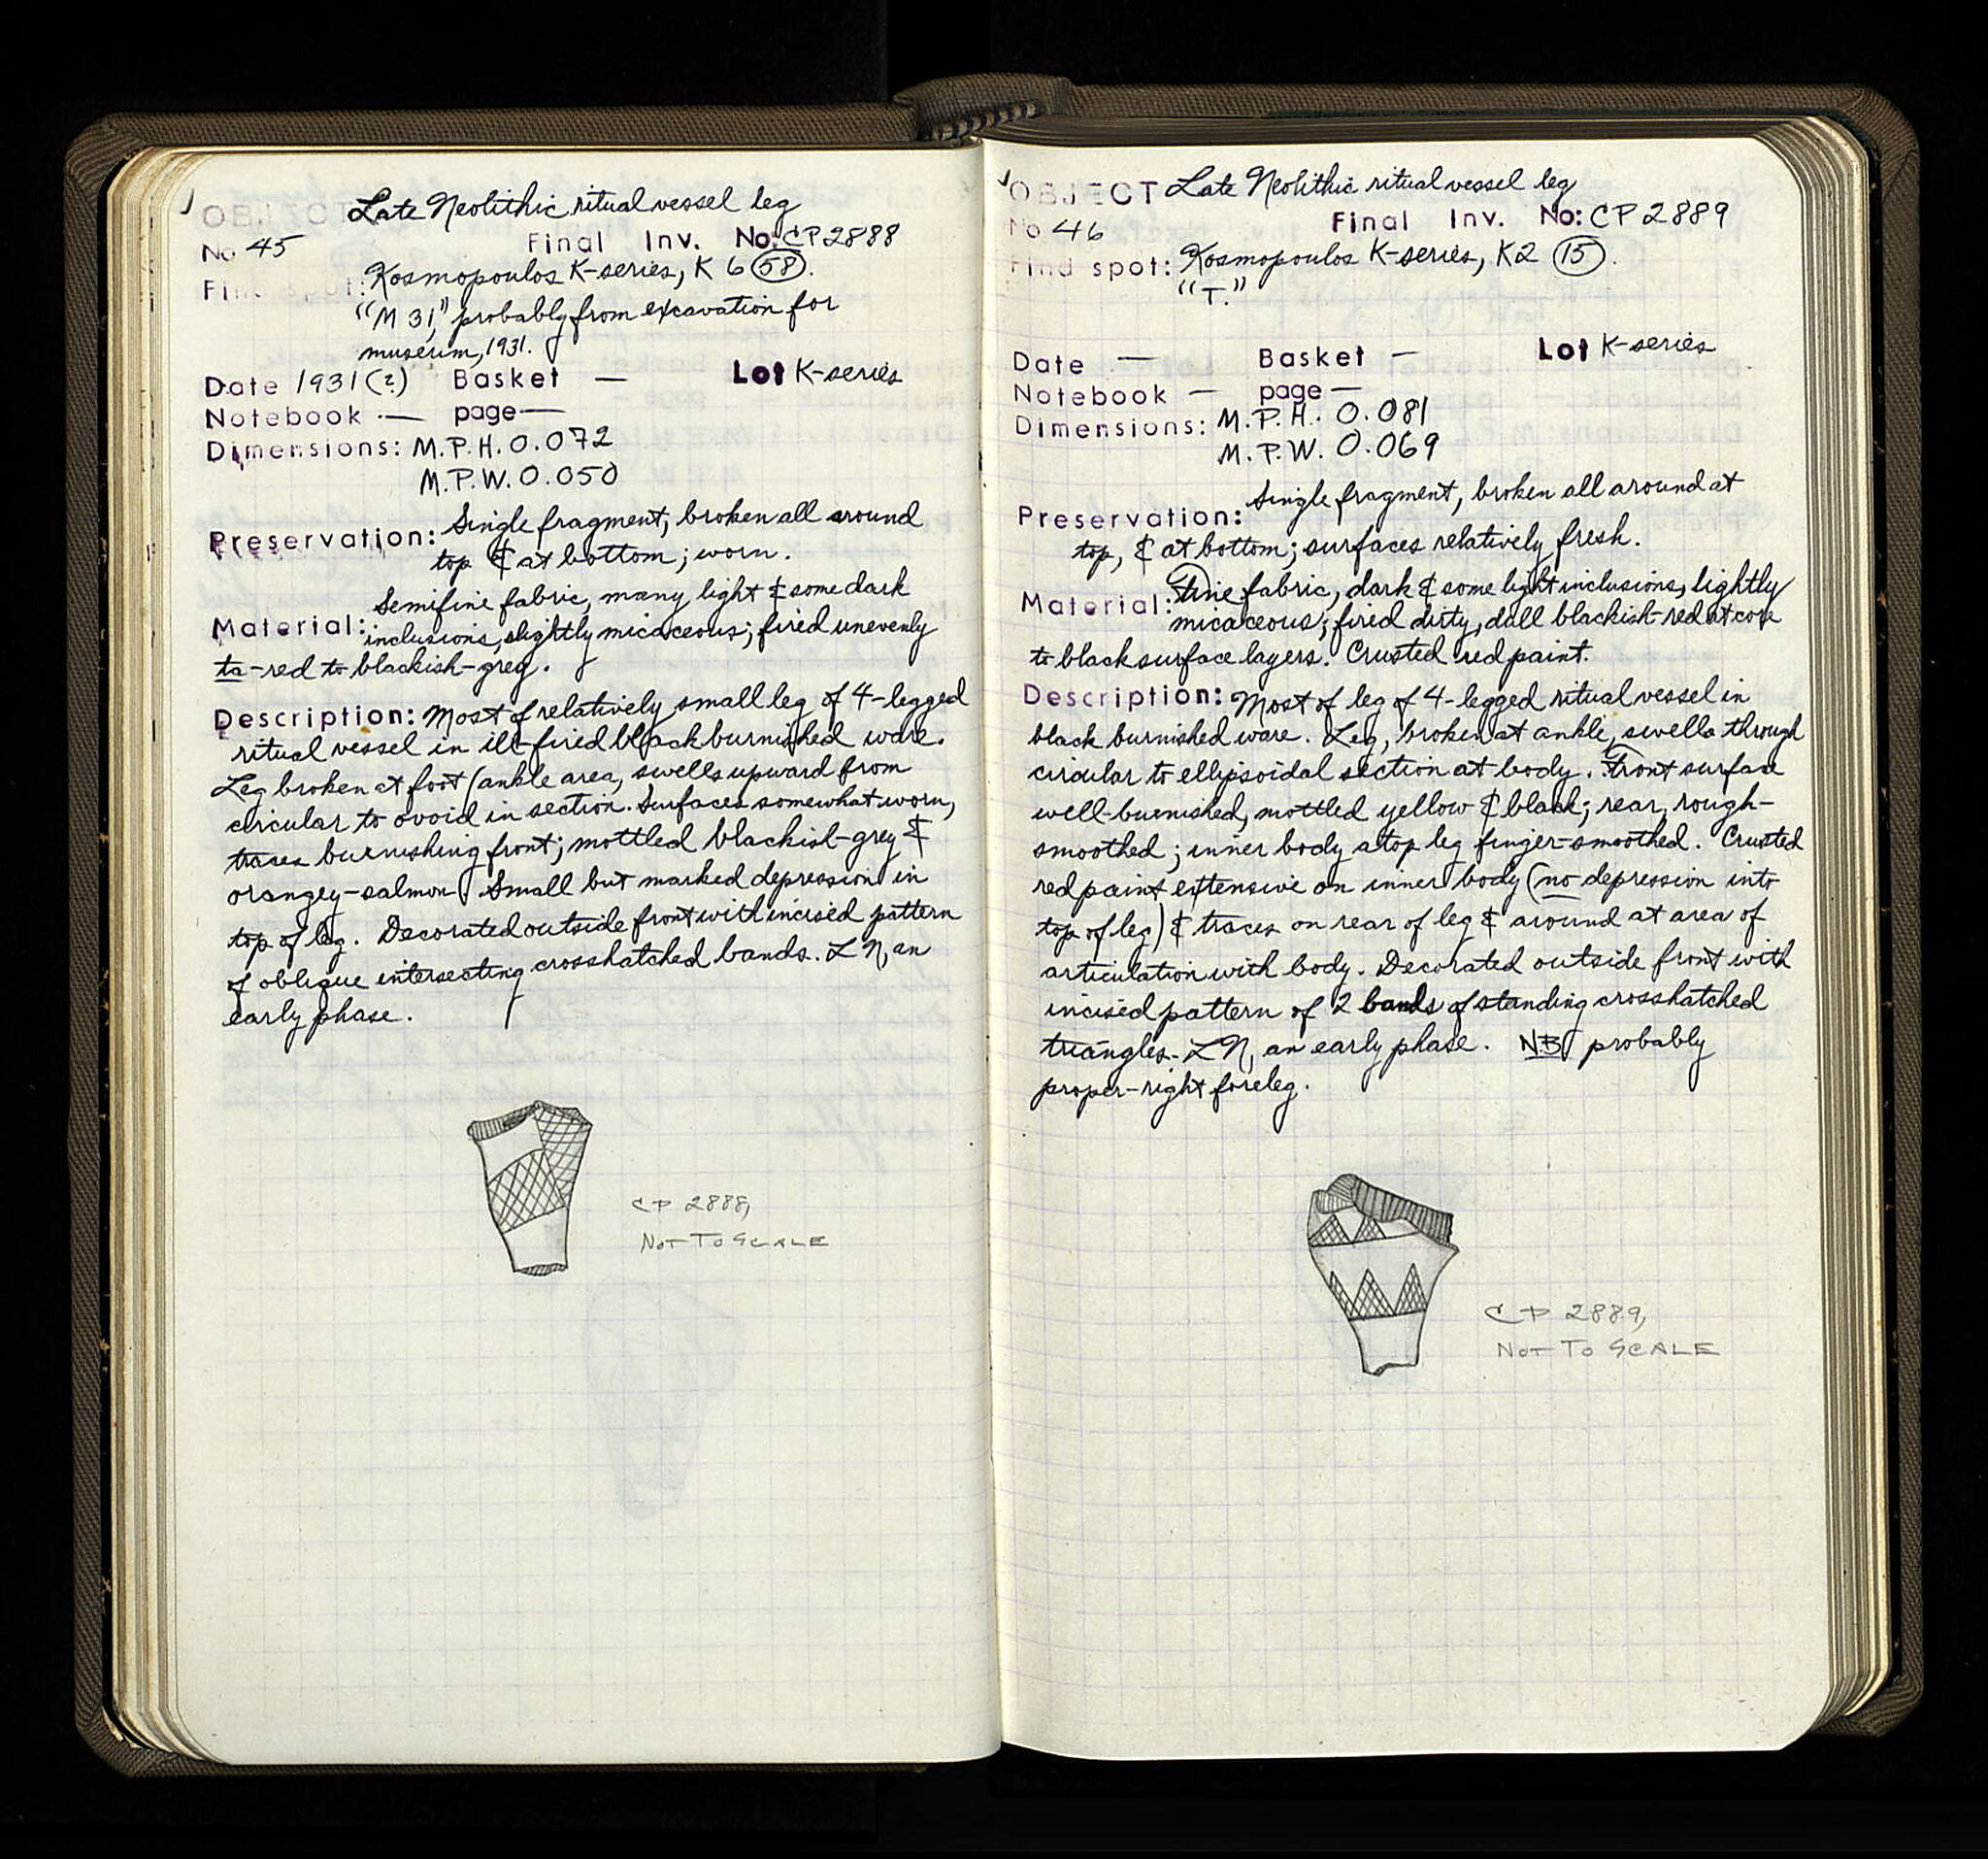 OBJECT Late Neolithic ritual vessel leg
No 45 Final Inv. No: CP 2888
Find spot: Kosmopoulos K-series, K 6 (58).
"M 31," probably from excavation for
museum, 1931.
Date 1931(?) Basket — Lot K-series
Notebook — page —
Dimensions: M.P.H. 0.072
M.P.W. 0.050
Preservation: Single fragment, broken all around
top & at bottom; worn.
Material: Semifine fabric, many light & some dark
inclusions, slightly micaceous; fired unevenly
to-red to blackish-grey.
Description: Most of relatively small leg of 4-legged
ritual vessel in ill-fired black burnished ware.
Leg broken at foot (ankle area, swells upward from
circular to ovoid in section. Surfaces somewhat worn,
traces burnishing front; mottled blackish-grey &
orangey-salmon. Small but marked depression in
top of leg. Decorated outside front with incised pattern
of oblique intersecting crosshatched bands. LN, an
early phase.
CP 2888,
NOT TO SCALE
OBJECT Late Neolithic ritual vessel leg
No 46 Final Inv. No: CP 2889
Find spot: Kosmopoulos K-series, K2 (15).
"T."
Date — Basket — Lot K-series
Notebook — page —
Dimensions: M.P.H. 0.081
M.P.W. 0.069
Preservation: Single fragment, broken all around at
top, & at bottom; surfaces relatively fresh.
Material: Fine fabric, dark & some light inclusions, lightly
micaceous; fired dirty, dull blackish-red at core
to black surface layers. Crusted red paint.
Description: Most of leg of 4-legged ritual vessel in
black burnished ware. Leg, broken at ankle, swells through
circular to ellipsoidal section at body. Front surface
well-burnished, mottled yellow & black; rear, rough-
smoothed; inner body atop leg finger-smoothed. Crusted
red paint extensive on inner body (no depression into
top of leg) & traces on rear of leg & around at area of
articulation with body. Decorated outside front with
incised pattern of 2 bands of standing crosshatched
triangles. LN, an early phase. NB probably
proper-right foreleg.
CP 2889,
NOT TO SCALE